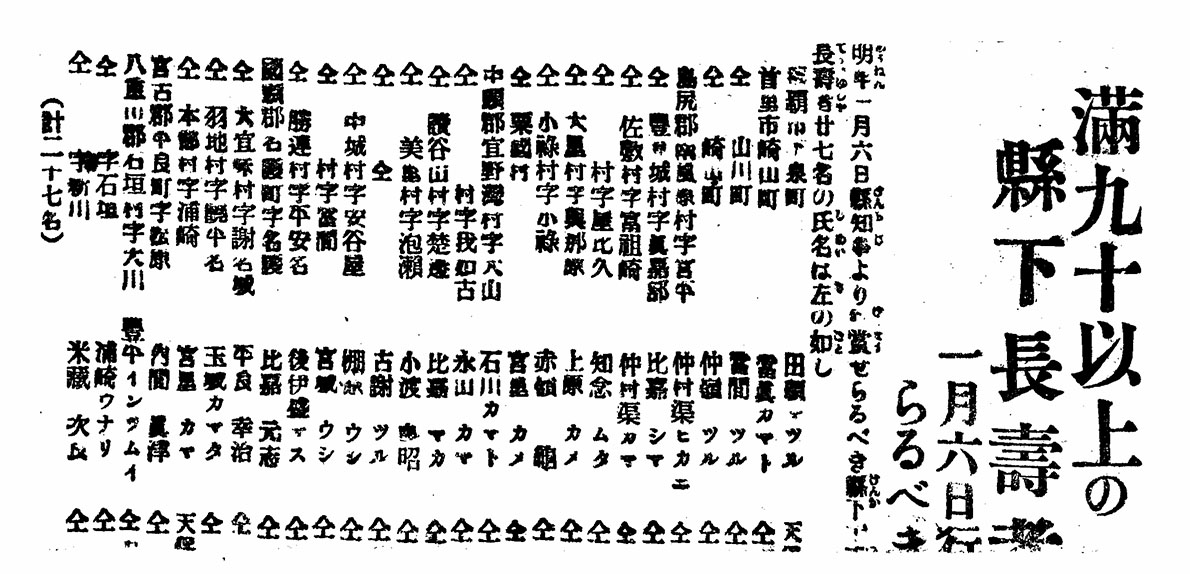 滿九十以上の
縣下長壽者
一月六日行
らるべき
明年一月六日縣知事より賞せらるべき縣下
長壽者廿七名の氏名は左の如し
那覇市下泉町 田頭 ツル 天保
首里市崎山町 當眞カマト 仝
仝 山川町 當間 ツル 仝
仝 崎山町 仲嶺 ツル 仝
島尻郡 村字宮平 仲村渠ヒカニ 仝
仝 豐見城村字眞嘉部 比嘉 シマ 仝
仝 佐敷村字富祖崎 仲村渠カマ 仝
仝 村字屋比久 知念 ムタ 仝
仝 大里村字與那原 上原 カメ 仝
仝 小祿村字小祿 赤嶺 龜 仝
仝 粟國村 宮里 カメ 仝
中頭郡宜野灣村字大山 石川カマト 仝
仝 村字我如古 永山 カマ 仝
仝 讀谷山村字楚邊 比嘉 マカ 仝
仝 美里村字泡瀬 小渡 昭 仝
仝 仝 古謝 ツル 仝
仝 中城村字安谷屋 棚原 ウシ 仝
仝 村字當間 宮城 ウシ 仝
仝 勝連村字平安名 後伊盛マス 仝
國頭郡名護町字名護 比嘉 元志 仝
仝 大宜味村字謝名城 平良 幸治 仝
仝 羽地村字饒平名 玉城カマタ 仝
仝 本部村字浦崎 宮里 カマ 天保
宮古郡平良町字松原 內間 眞津 仝
八重山郡石垣村字大川 豐平インツムイ 仝
仝 字石垣 浦崎ウナリ 仝
仝 字新川 米藏 次良 仝
（計二十七名）